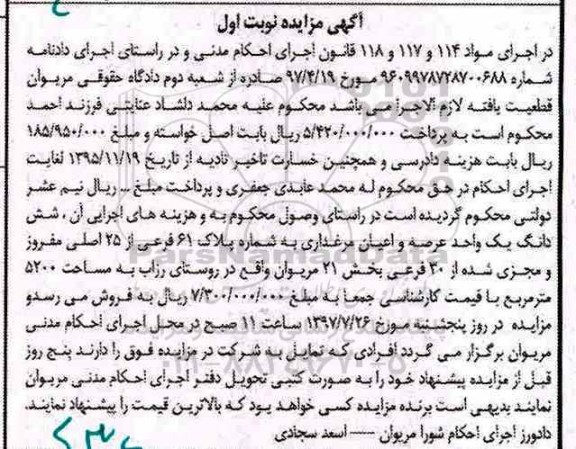 آگهی مزایده نوبت اول
در اجرای مواد ۱۱۴ و ۱۱۷ و ۱۱۸ قانون اجرای احکام مدنی و در راستای اجرای دادنامه
شماره ۹۶۰۹۹۷۸۷۲۸۷۰۰۶۸۸ مورخ ۹۷/۴/۱۹ صادره از شعبه دوم دادگاه حقوقی مریوان
قطعیت یافته لازم الاجرا می باشد محکوم علیه محمد دلشاد عنایتی فرزند احمد
محکوم است به پرداخت ۵/۴۲۰/۰۰۰/۰۰۰ ریال بابت اصل خواسته و مبلغ ۱۸۵/۹۵۰/۰۰۰
ریال بابت هزینه دادرسی و همچنین خسارت تاخیر تادیه از تاریخ ۱۳۹۵/۱۱/۱۹ لغایت
اجرای احکام در حق محکوم له محمد عابدی جعفری و پرداخت مبلغ ... ریال نیم عشر
دولتی محکوم گردیده است در راستای وصول محکوم به و هزینه های اجرایی آن ، شش
دانگ یک واحد عرصه و اعیان مرغداری به شماره پلاک ۶۱ فرعی از ۲۵ اصلی مفروز
و مجزی شده از ۳۰ فرعی بخش ۲۱ مریوان واقع در روستای رزاب به مساحت ۵۲۰۰
مترمربع با قیمت کارشناسی جمعا به مبلغ ۷/۳۰۰/۰۰۰/۰۰۰ ریال به فروش می رسدو
مزایده در روز پنجشنبه مورخ ۱۳۹۷/۷/۲۶ ساعت ۱۱ صبح در محل اجرای احکام مدنی
مریوان برگزار می گردد افرادی که تمایل به شرکت در مزایده فوق را دارند پنج روز
قبل از مزایده پیشنهاد خود را به صورت کتبی تحویل دفتر اجرای احکام مدنی مریوان
نمایند بدیهی است برنده مزایده کسی خواهد بود که بالاترین قیمت را پیشنهاد نمایند.
دادورز اجرای احکام شورا مریوان ---- اسعد سجادی
ParsNamadData